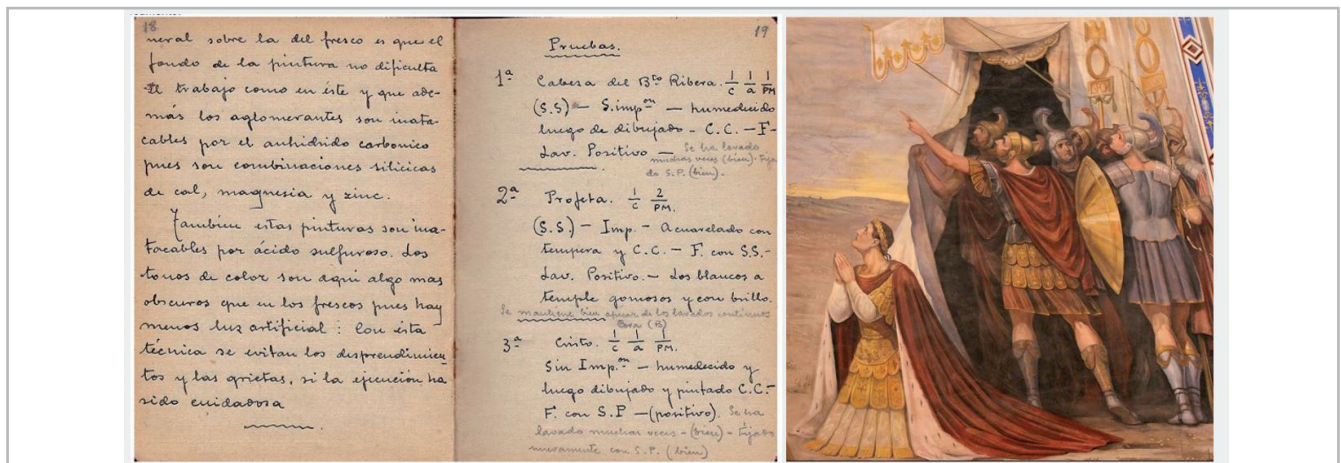 18
neral sobre la del fresco es que el
fondo de la pintura no dificulta
el trabajo como en éste y que ade-
más los aglomerantes son inata-
cables por el anhidrido carbonico
pues son combinaciones silicicas
de cal, magnesia y zinc.
Tambien estas pinturas son ina-
tacables por ácido sulfuroso. Los
tonos de color son aqui algo mas
obscuros que en los frescos pues hay
menos luz artificial: Con ésta
técnica se evitan los desprendimien
tos y las grietas, si la ejecución ha
sido cuidadosa
19
Pruebas.
1ª Cabeza del Bto Ribera. 1/c 1/a 1/PM
(S.S) — S.impon — humedecido
luego de dibujado - C.C. — F-
Lav. Positivo — Se ha lavado
muchas veces (bien). Fija
do S.P. (bien).
2ª Profeta. 1/c 2/PM.
(S.S) — Imp. — Acuarelado con
tempera y C.C. — F. con S.S.-
Lav. Positivo. — Los blancos a
temple gomosos y con brillo.
Se mantiene bien apesar de los lavados continuos
Cera (B)
3ª Cristo. 1/c 1/a 1/PM.
Sin Imp.on — humedecido y
luego dibujado y pintado C.C.-
F. con S.P — (positivo). Se ha
lavado muchas veces - (bien) - Fijado
nuevamente con S.P. (bien)